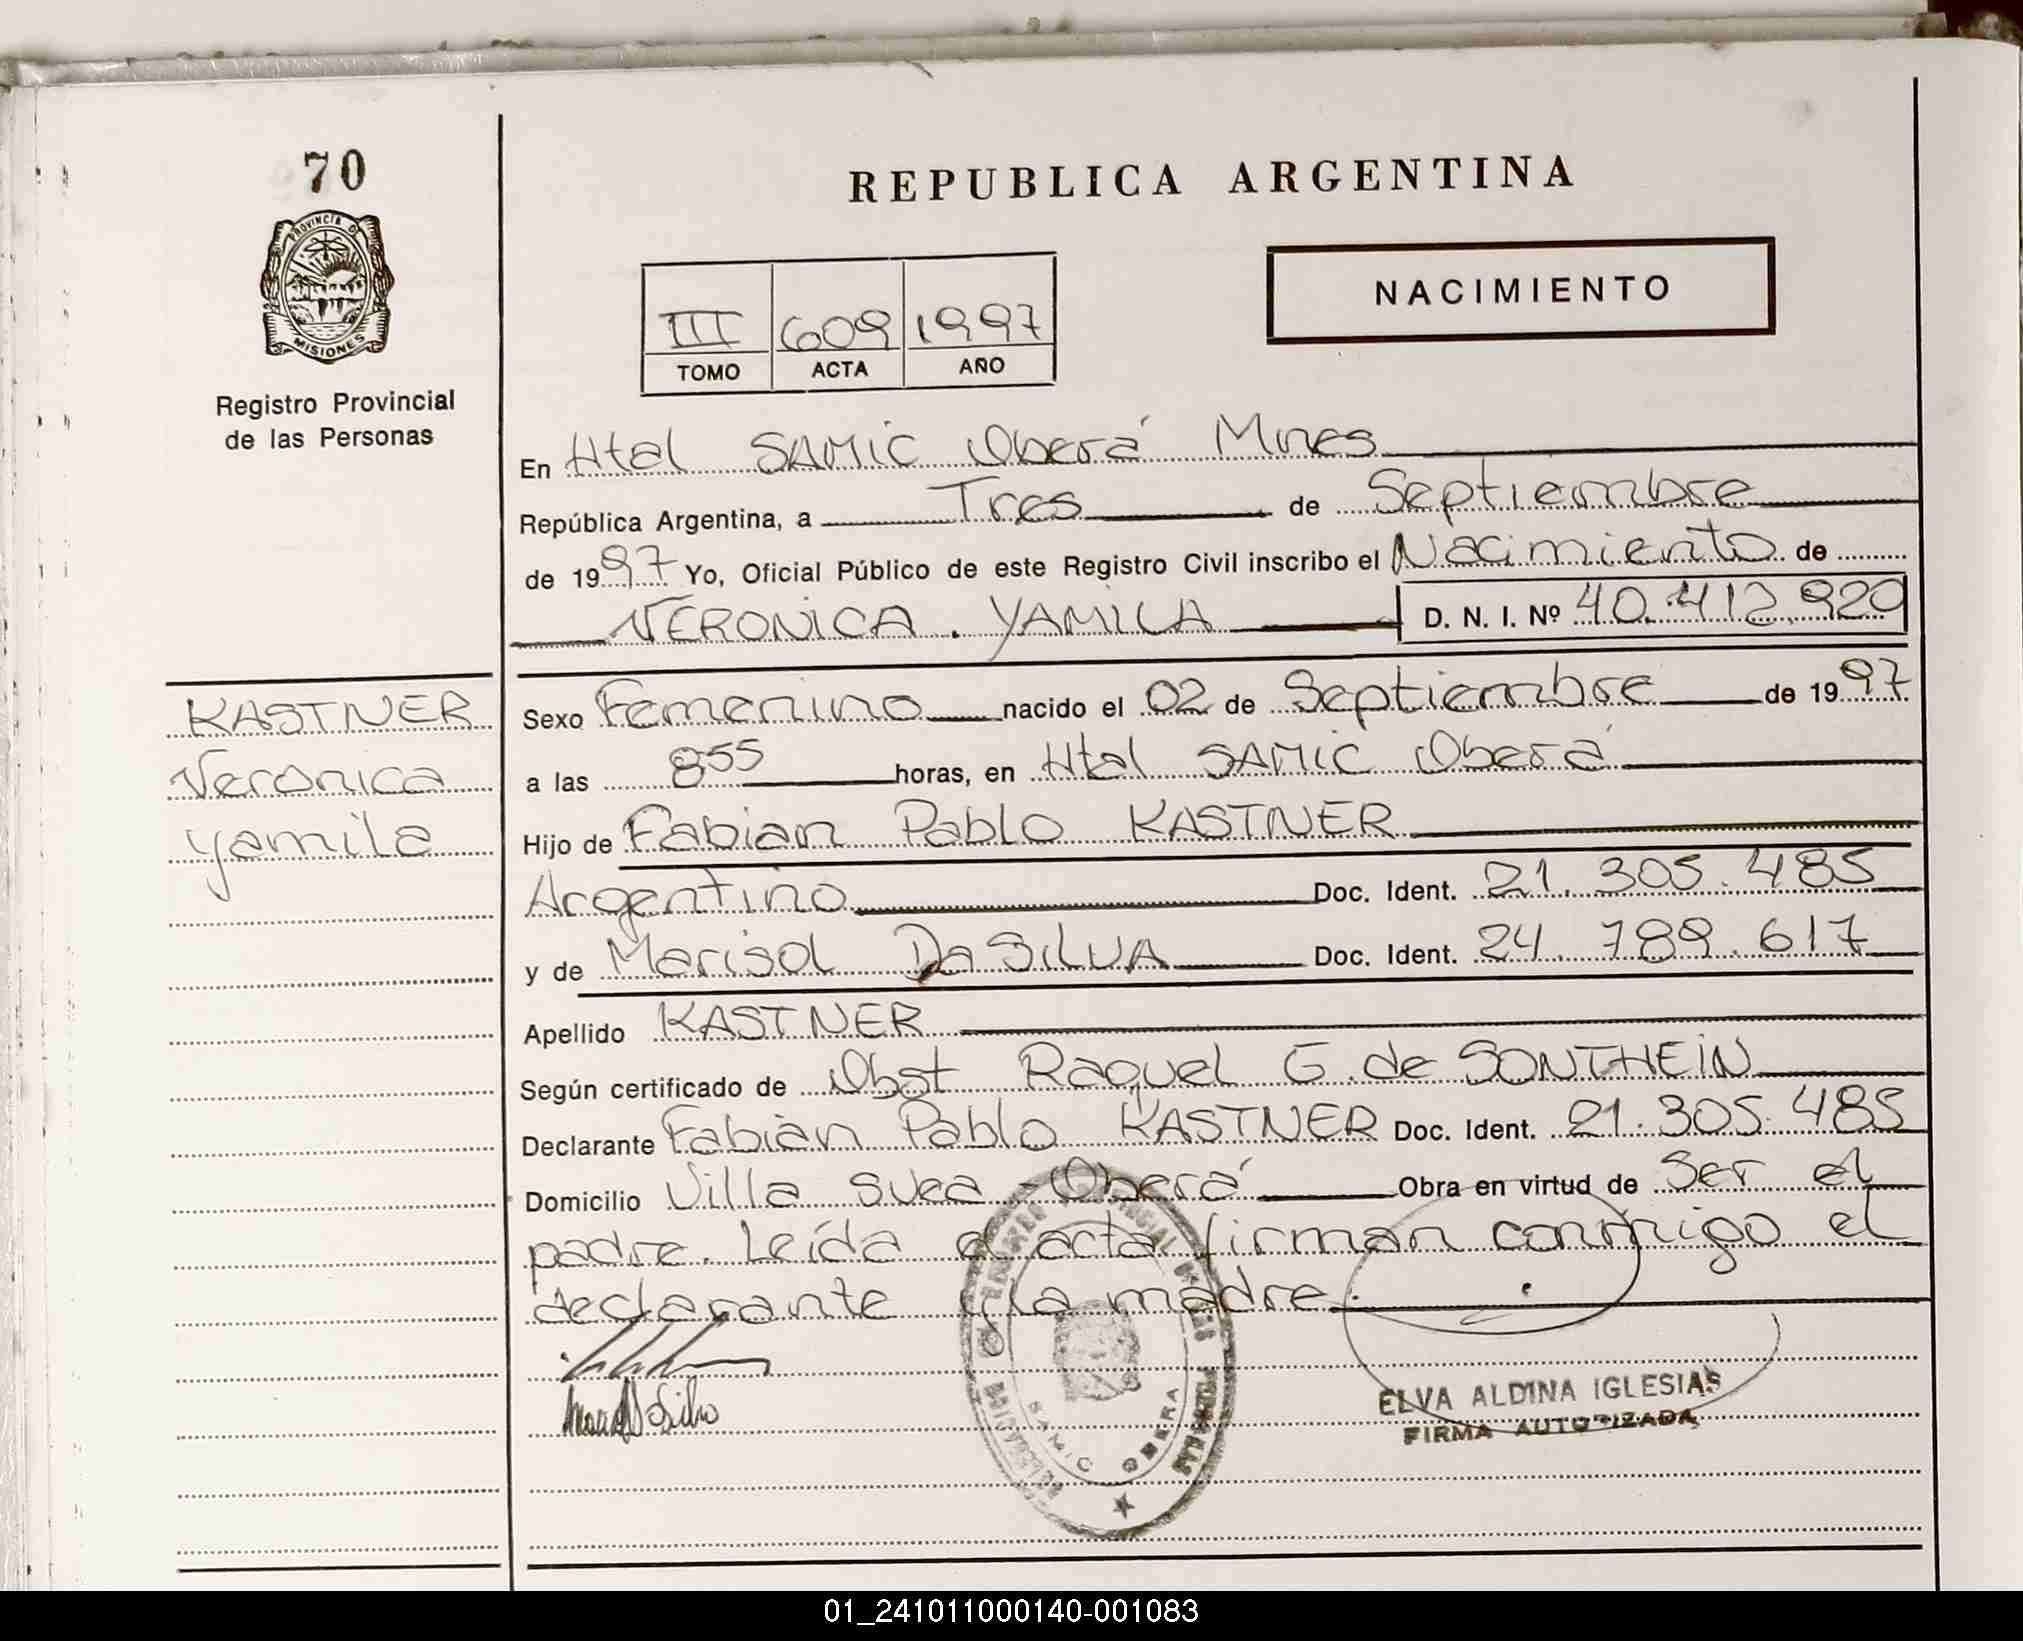 70
PROVINCIA D
MISIONES
Registro Provincial
de las Personas
REPUBLICA ARGENTINA
NACIMIENTO
III 609 1997
TOMO ACTA AÑO
En Htal SAMIC Oberá Mnes
República Argentina, a Tres de Septiembre
de 1997 Yo, Oficial Público de este Registro Civil inscribo el Nacimiento de
VERONICA. YAMILA D. N. I. Nº 40.412.920
KASTNER
Veronica
Yamila
Sexo Femenino nacido el 02 de Septiembre de 1997
a las 8 55 horas, en Htal SAMIC Oberá
Hijo de Fabian Pablo KASTNER
Argentino Doc. Ident. 21.305.485
y de Marisol Da SILVA Doc. Ident. 24.789.617
Apellido KASTNER
Según certificado de Obst Raquel G. de SONTHEIN
Declarante Fabián Pablo KASTNER Doc. Ident. 21.305.485
Domicilio Villa Svea - Oberá Obra en virtud de Ser el
padre. Leída el acta firman conmigo el
declarante y la madre.
SAMIC OBERA
ELVA ALDINA IGLESIAS
FIRMA AUTORIZADA
01_241011000140-001083